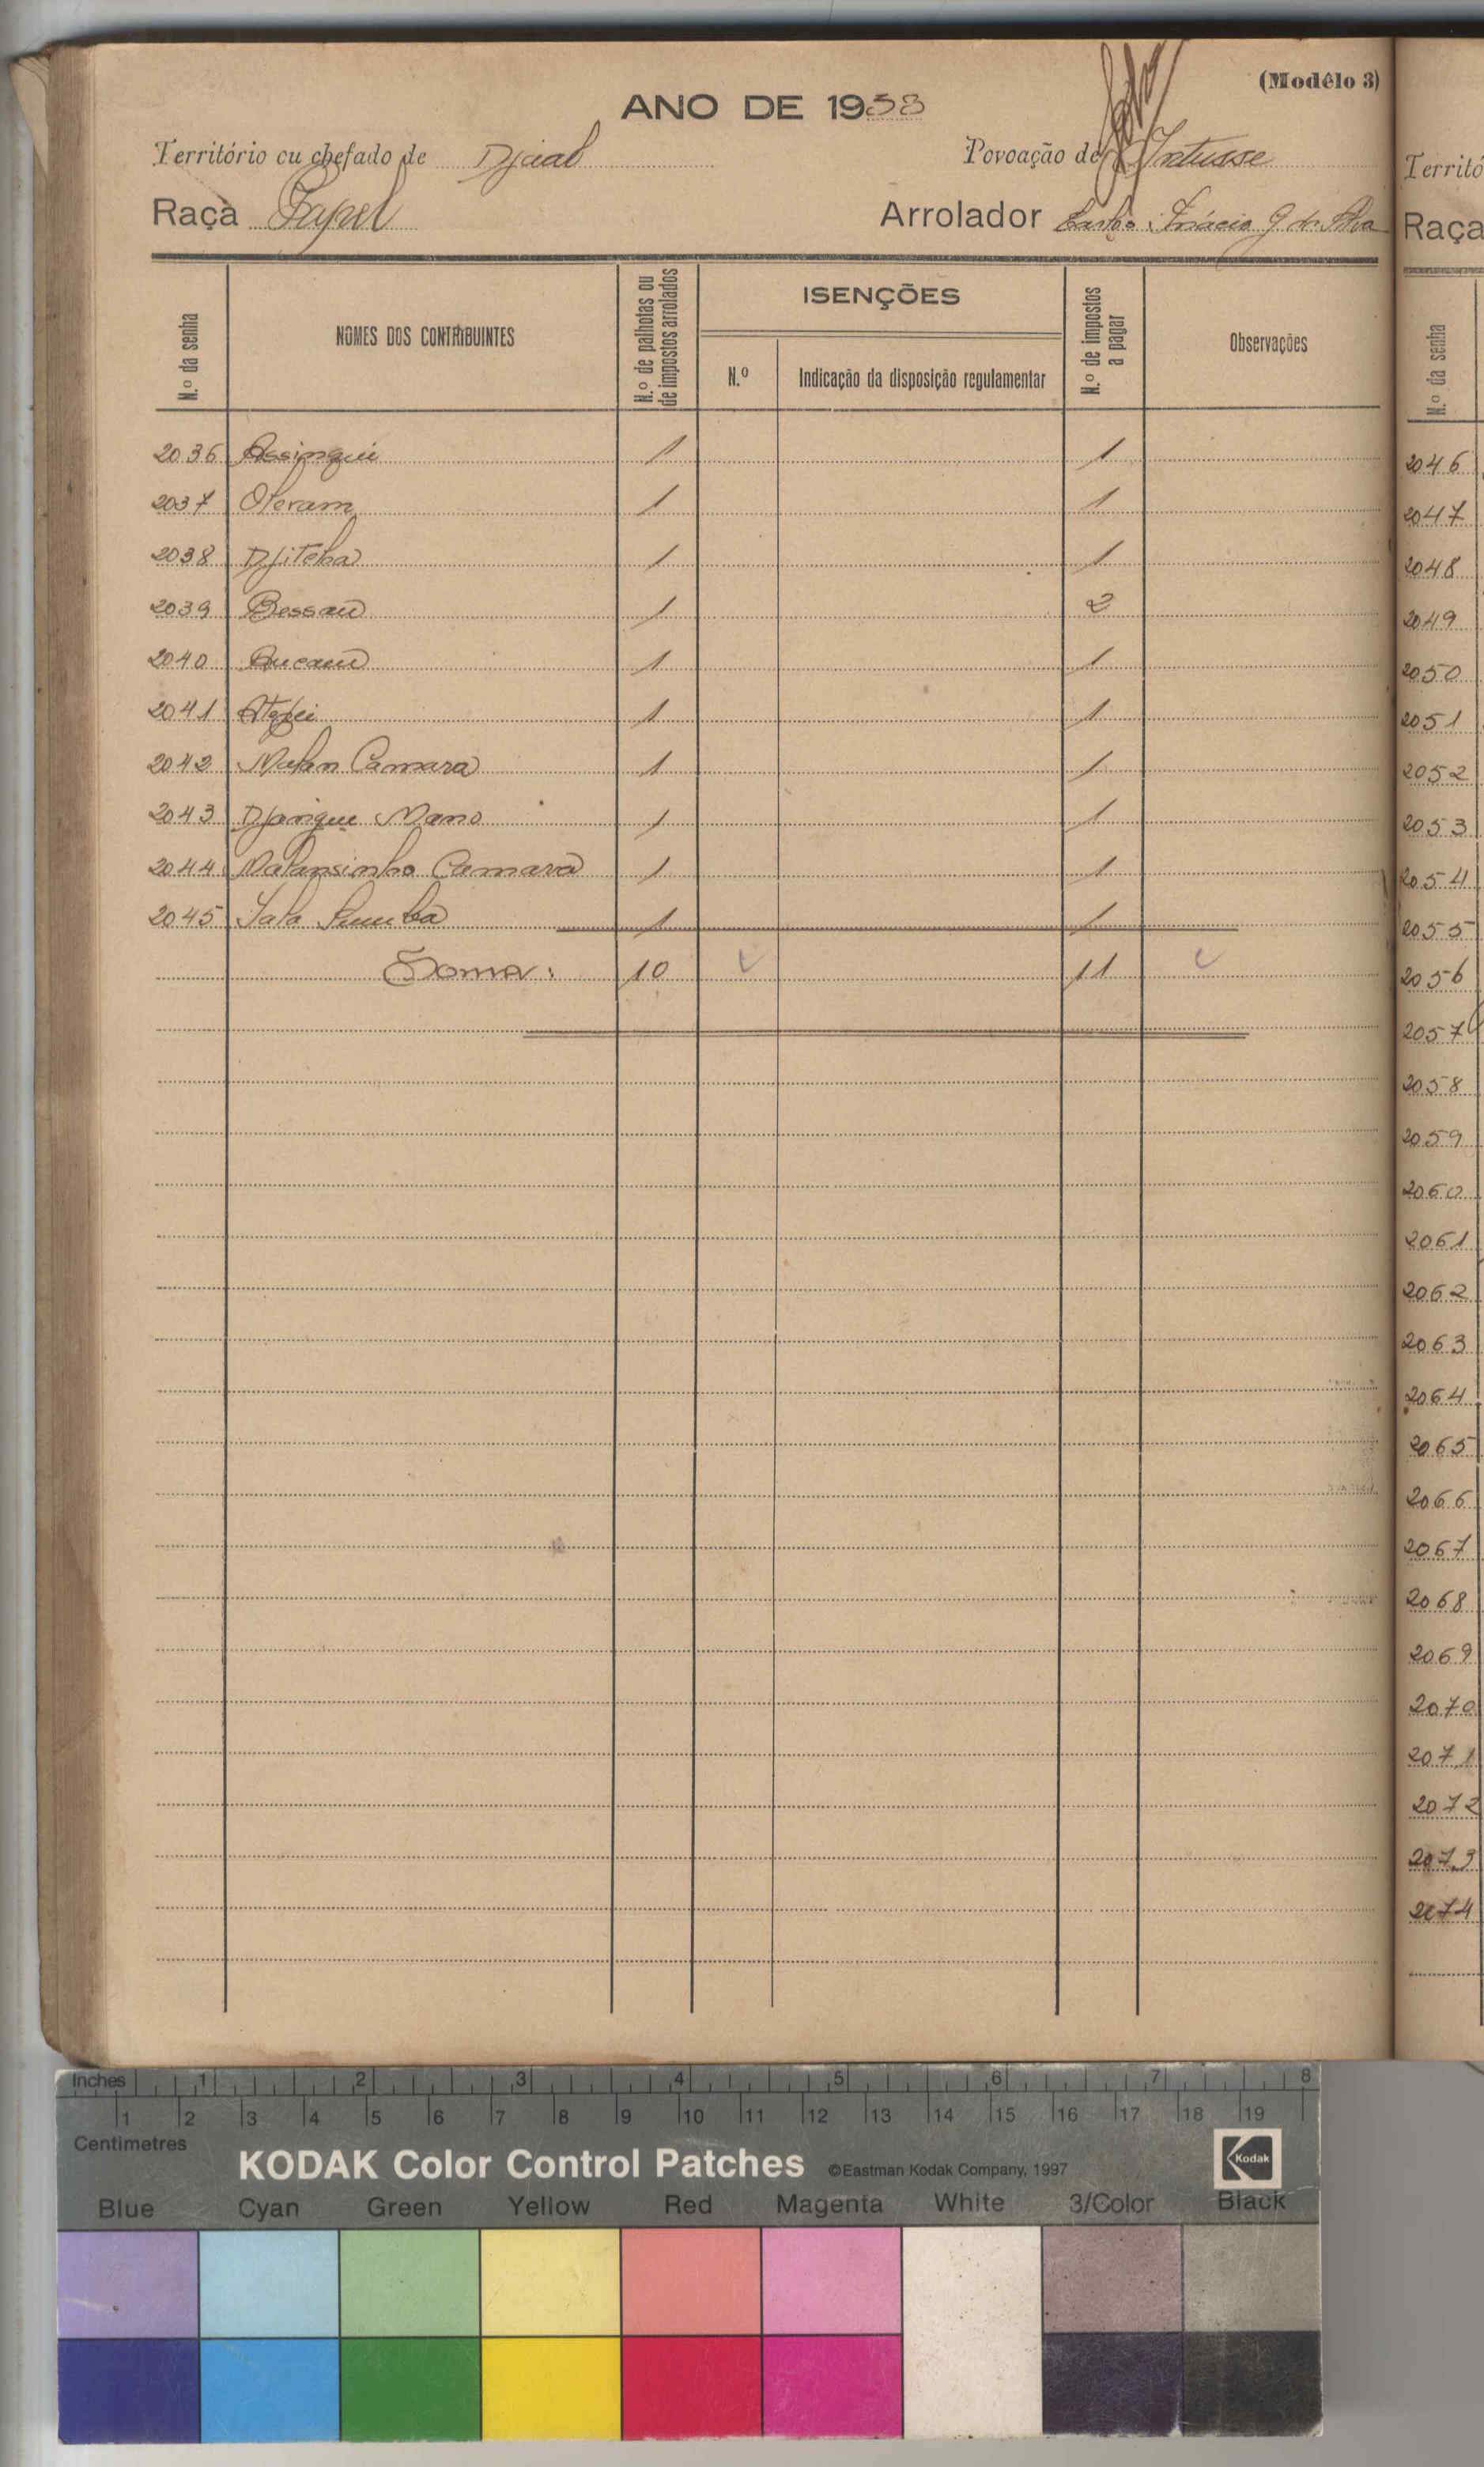 (Modêlo 3)
ANO DE 1938
Território ou chefado de Djaal Povoação de Intusse
Raça Papel Arrolador Carlos Inácio G. da Silva
N.º da senha
NOMES DOS CONTRIBUINTES
N.º de palhotas ou de impostos arrolados
ISENÇÕES
N.º
Indicação da disposição regulamentar
N.º de impostos a pagar
Observações
2036 Assingui 1 1
2037 1 1
2038 1 1
2039 Bessau 1 2
2040 1 1
2041 1 1
2042 Malan Camara 1 1
2043 Djangue Mano 1 1
2044 Malansinho Camara 1 1
2045 1 1
Soma: 10 11
Territó
Raça
N.º da senha
2046
2047
2048
2049
2050
2051
2052
2053
2054
2055
2056
2057
2058
2059
2060
2061
2062
2063
2064
2065
2066
2067
2068
2069
2070
2071
2072
2073
2074
Inches 1 2 3 4 5 6 7 8
1 2 3 4 5 6 7 8 9 10 11 12 13 14 15 16 17 18 19
Centimetres
KODAK Color Control Patches ©Eastman Kodak Company, 1997 Kodak
Blue Cyan Green Yellow Red Magenta White 3/Color Black